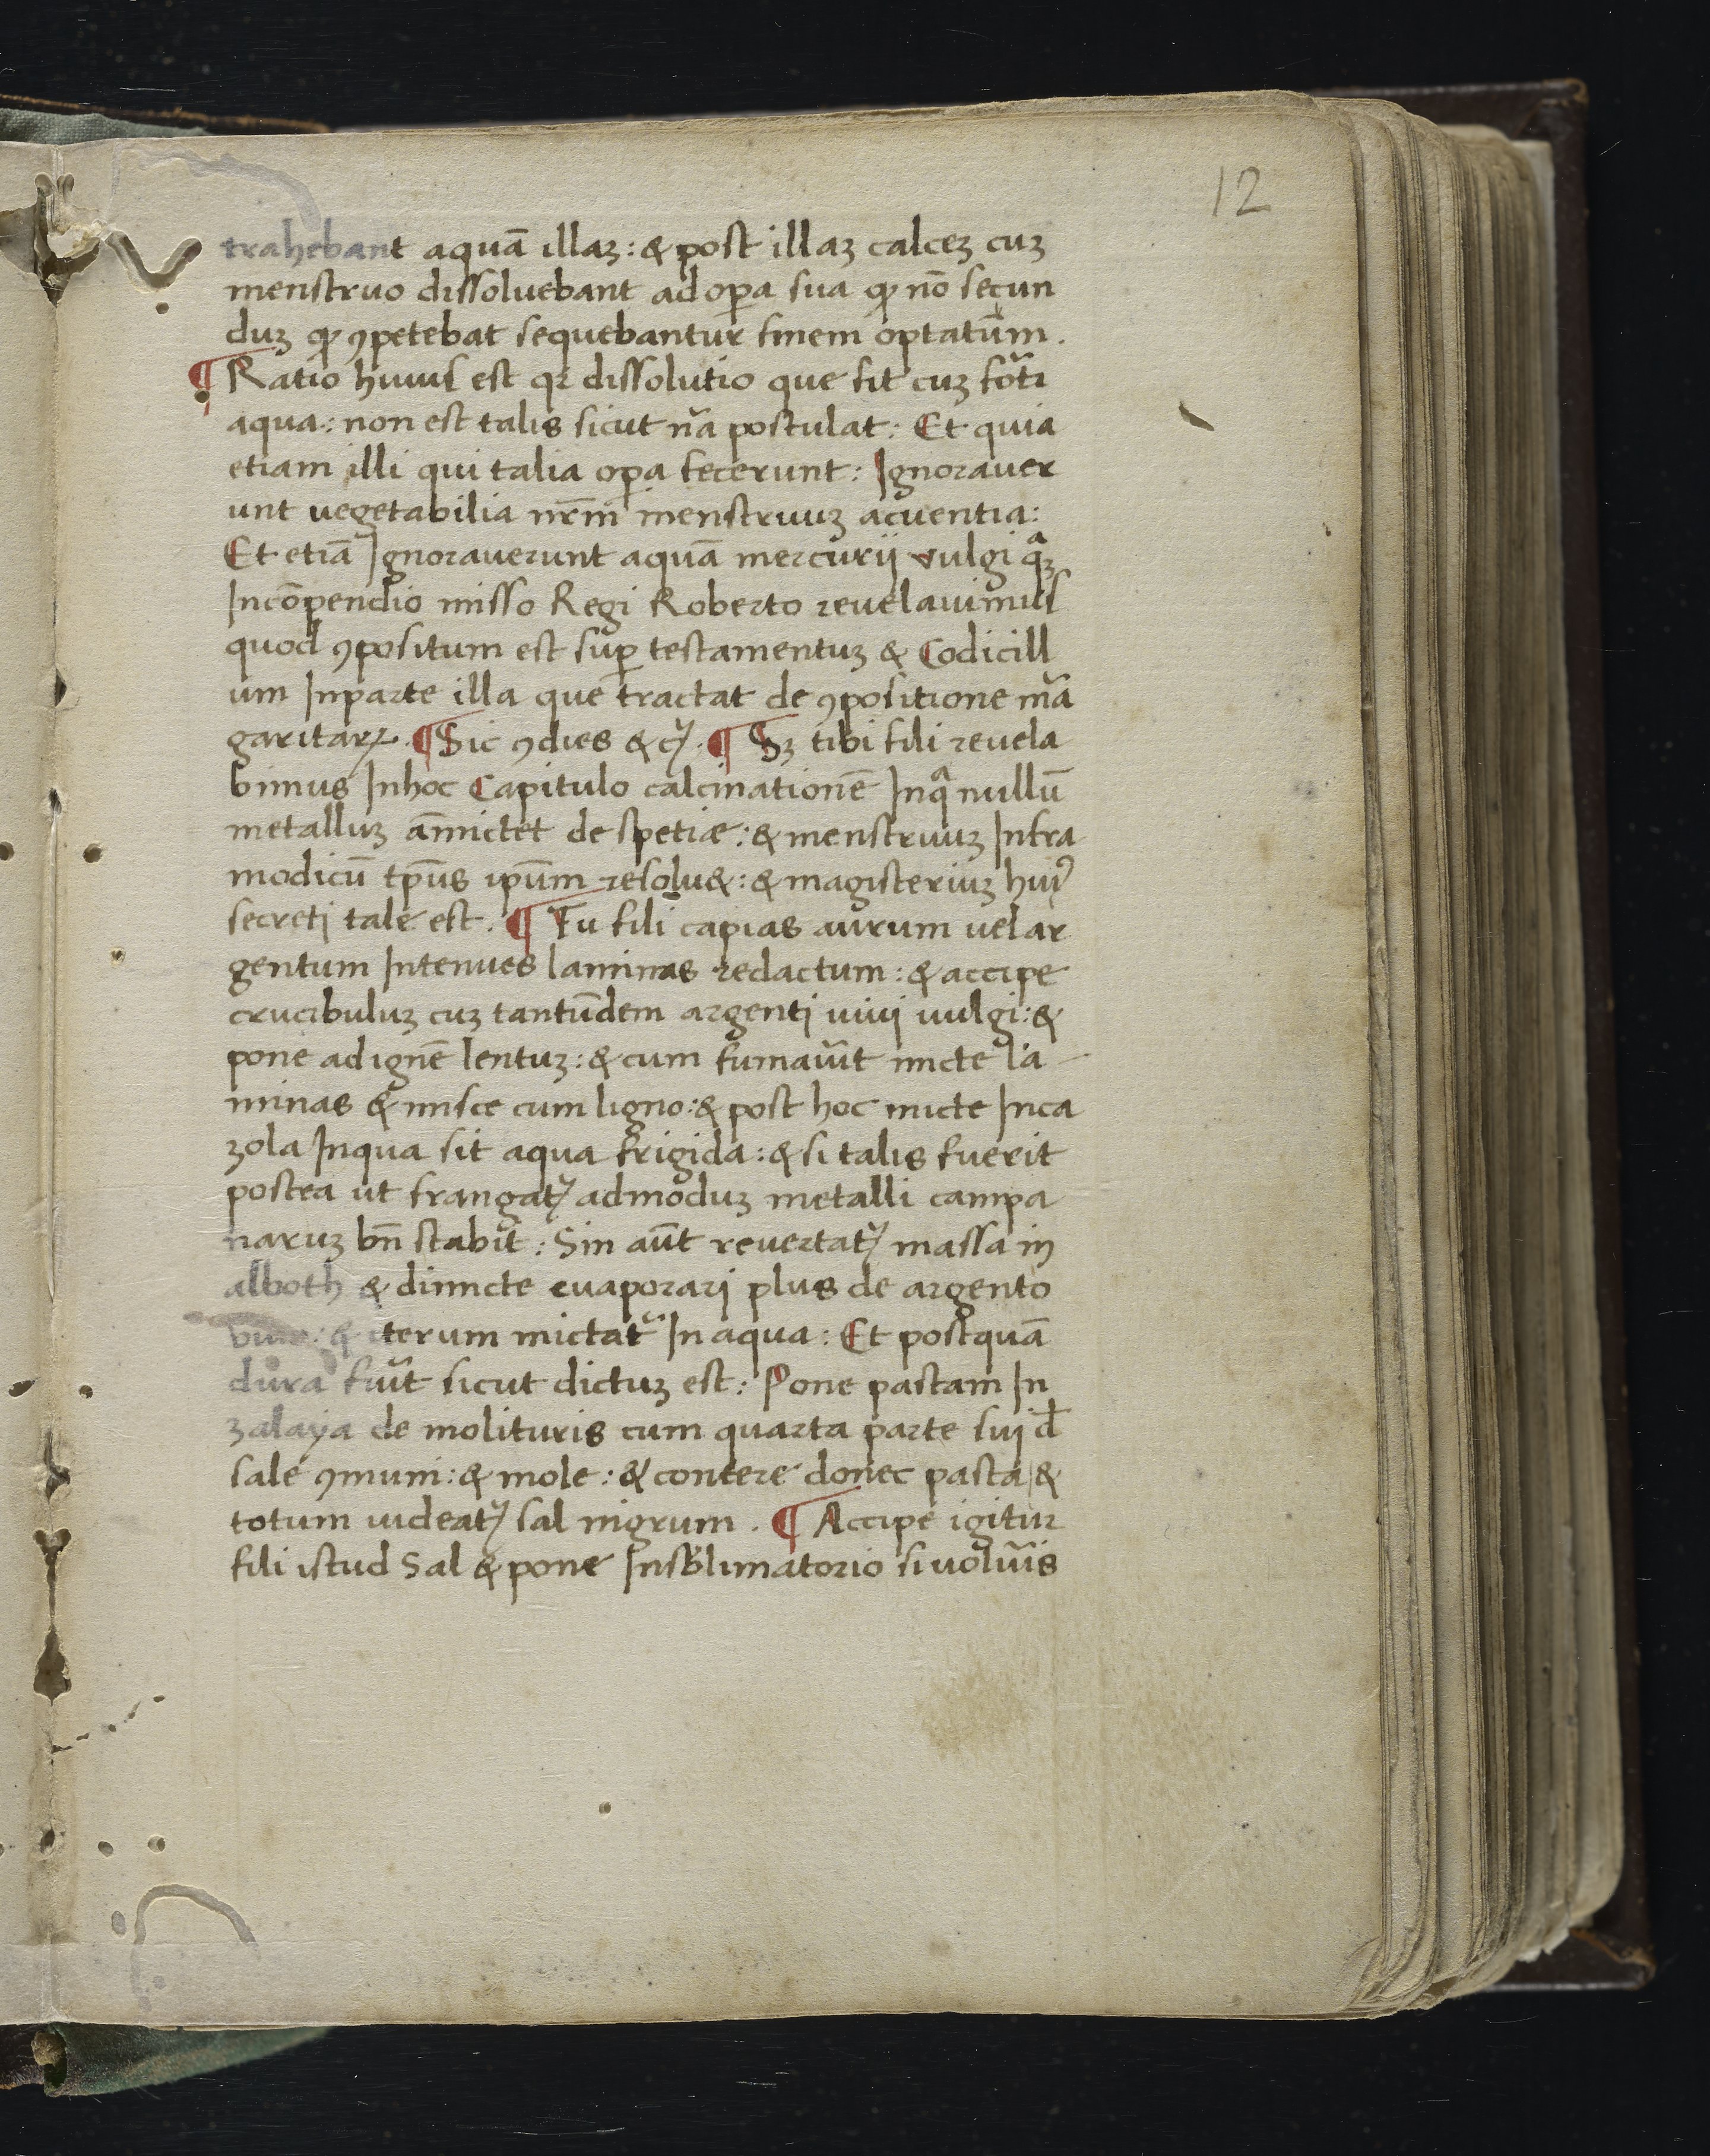 12
trahebant aquā illaꝫ: & post illaꝫ calceꝫ cuꝫ
menstruo dissoluebant ad oꝑa sua ꝙ nō secun
duꝫ ꝙ ꝯpetebat sequebantur finem optatum.
¶ Ratio huius est qꝛ dissolutio que fit cuꝫ forti
aqua: non est talis sicut nā postulat: Et quia
etiam illi qui talia oꝑa fecerunt: Ignorauer
unt vegetabilia nr̄m menstruuꝫ acuentia:
Et etiā Ignorauerunt aquā mercurij vulgi quā
Incōpendio misso Regi Roberto reuelauimus
quod ꝯpositum est suꝑ testamentuꝫ & Codicill
um Inparte illa que tractat de ꝯpositione mā
garitaꝝ. ¶ Sic ꝯdies &cͥ. ¶ Sꝫ tibi fili reuela
bimus Inhoc Capitulo calcinationē Inqͣ nullū
metalluꝫ am̄ictet de spetiæ: & menstruuꝫ Infra
modicū tp̄us ip̄um resolu&: & magisteriuꝫ huiꝰ
secreti tale est. ¶ Tu fili capias aurum uel ar
gentum Intenues laminas redactum: & accipe
crucibuluꝫ cuꝫ tantūdem argenti uiui uulgi: &
pone ad ignē lentuꝫ: & cum fumau͛it micte la
minas & misce cum ligno: & post hoc micte Inca
ꝫola Inqua sit aqua frigida: & si talis fuerit
postea ut frangatꝛ admoduꝫ metalli campa
naruꝫ bn̄ stabit: Sin aūt reuertatꝛ massa in
alboth & dimicte euaporari plus de argento
uiuo: & iterum mictatᷣ In aqua: Et postquā
dura fu͛it sicut dictuꝫ est: Pone pastam In
ꝫalaya de molituris cum quarta parte sui đ
sale ꝯmuni: & mole: & contere donec pasta &
totum uideatꝛ sal nigrum. ¶ Accipe igitur
fili istud Sal & pone Insb̄limatorio si uolu͛is